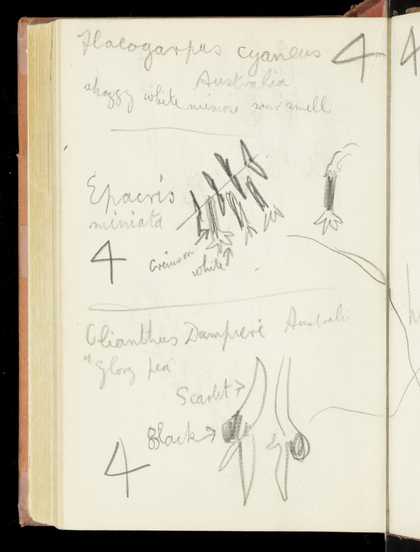 Elaeocarpus cyaneus 4
Australia
shaggy white mimosa sour smell
Epacris
miniata
4
Crimson
white
Clianthus Dampieri Australi
"glory pea"
Scarlet
Black
4